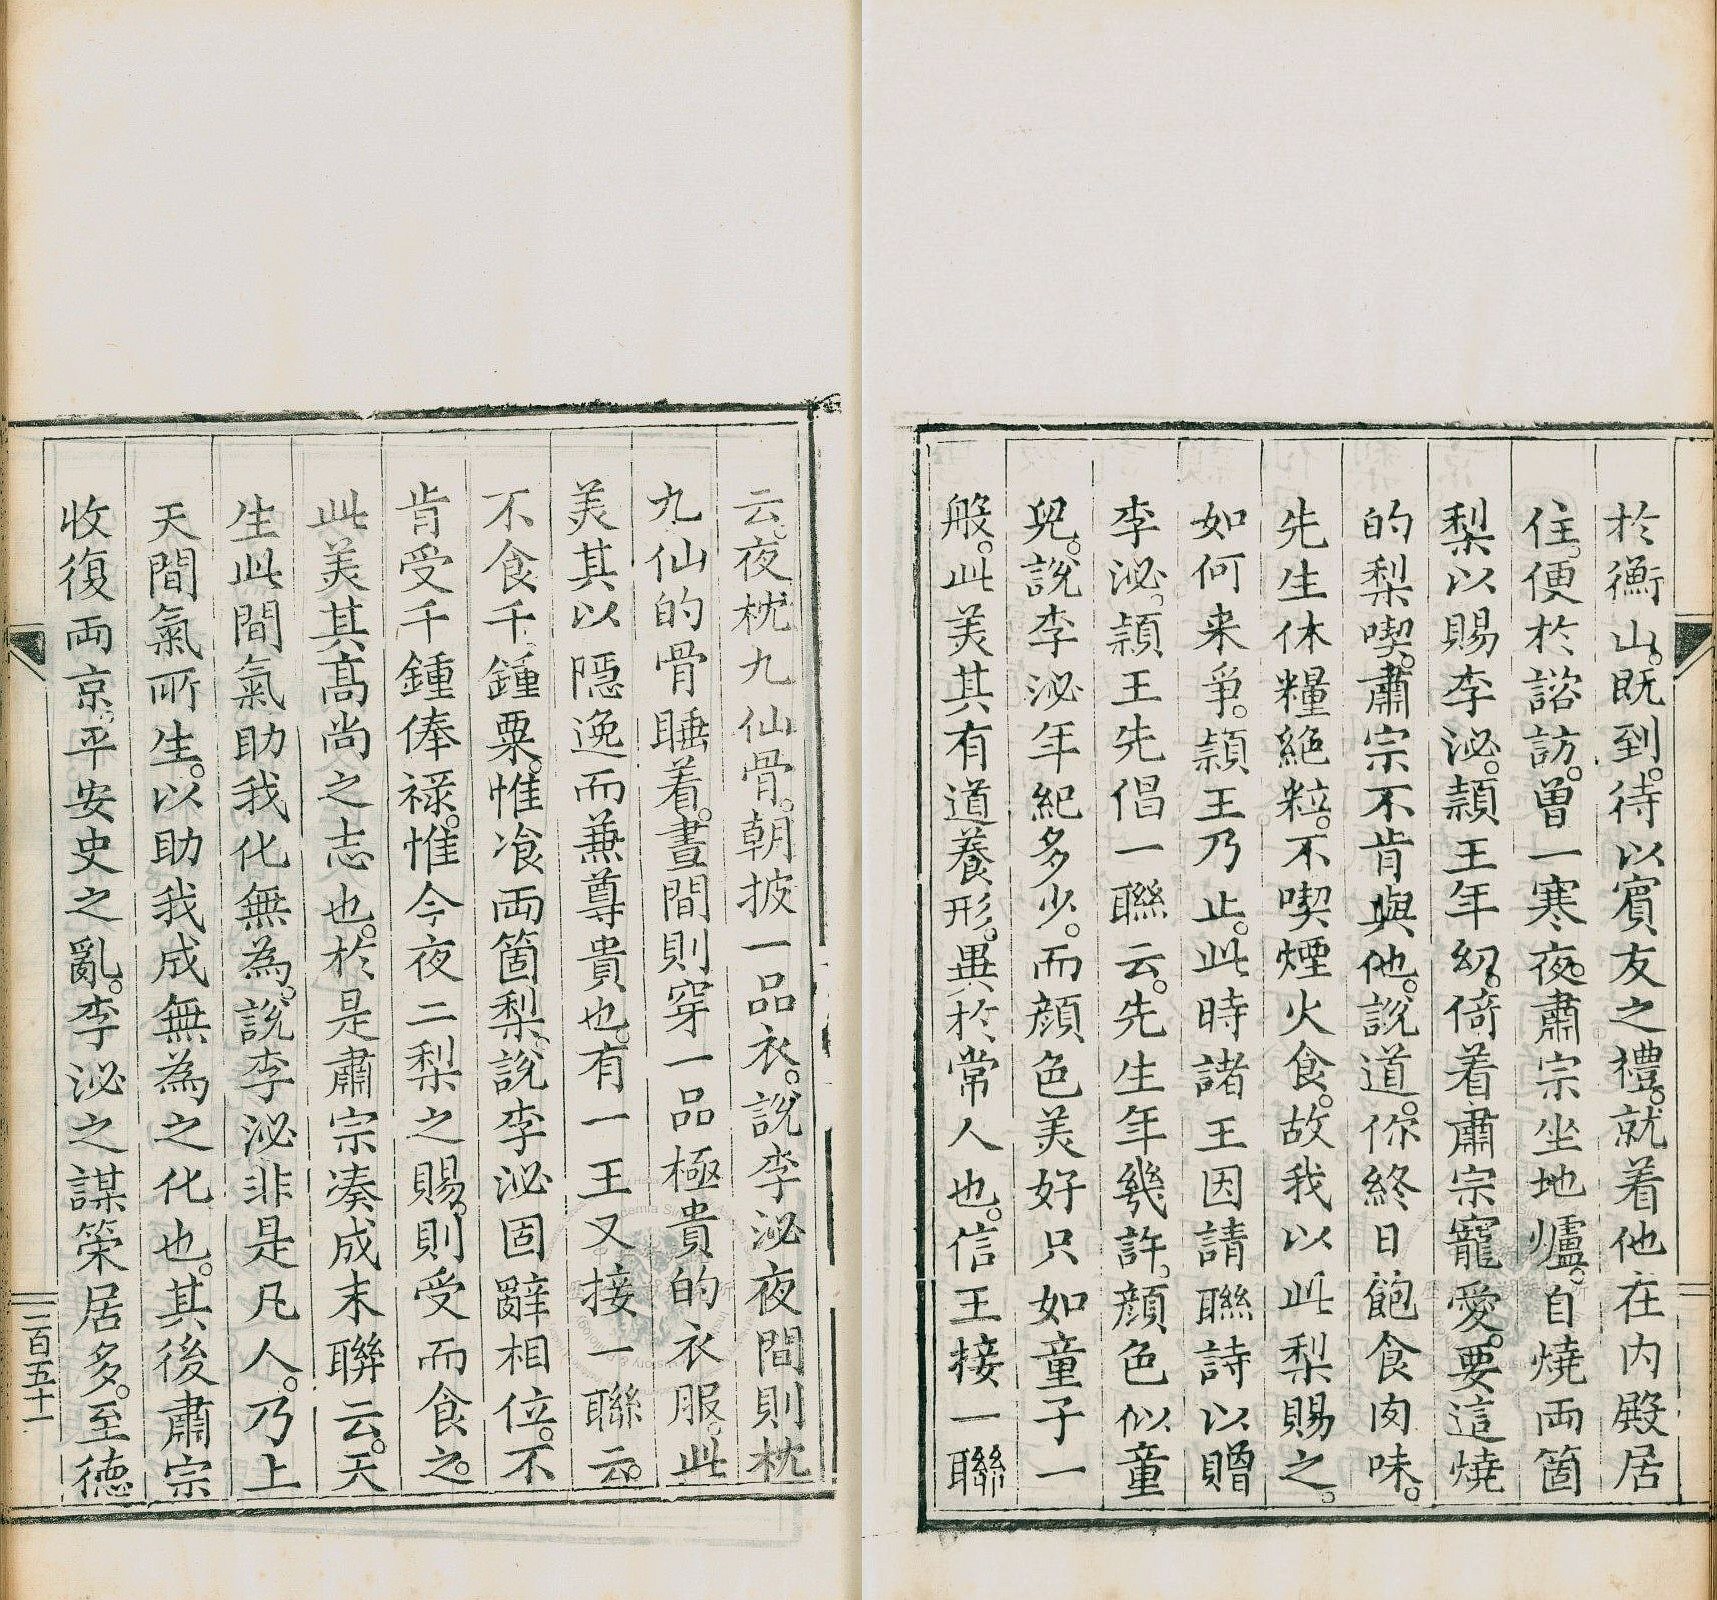 於衡山。既到。待以賓友之禮。就着他在内殿居
住。便於諮訪。曽一寒夜。肅宗坐地爐。自燒両箇
梨以賜李泌。頴王年㓜。倚着肅宗寵愛。要這燒
的梨喫。肅宗不肯與他。說道。你終日飽食肉味。
先生休糧絕粒。不喫煙火食。故我以此梨賜之。
如何来爭。頴王乃止。此時諸王因請聯詩以贈
李泌。頴王先倡一聯云。先生年幾許。顔色似童
兒。說李泌年紀多少。而顔色美好只如童子一
般。此美其有道養形。異於常人也。信王接一聯
云。夜枕九仙骨。朝披一品衣。說李泌夜間則枕
九仙的骨睡着。晝間則穿一品極貴的衣服。此
美其以隱逸而兼尊貴也。有一王又接一聯云。
不食千鍾粟。惟飡両箇梨。說李泌固辭相位。不
肯受千鍾俸禄。惟今夜二梨之賜。則受而食之。
此美其高尚之志也。於是肅宗凑成末聯云。天
生此間氣助我化無為。說李泌非是凡人。乃上
天間氣所生。以助我成無為之化也。其後肅宗
收復両京。平安史之亂。李泌之謀策居多。至德
二百五十一